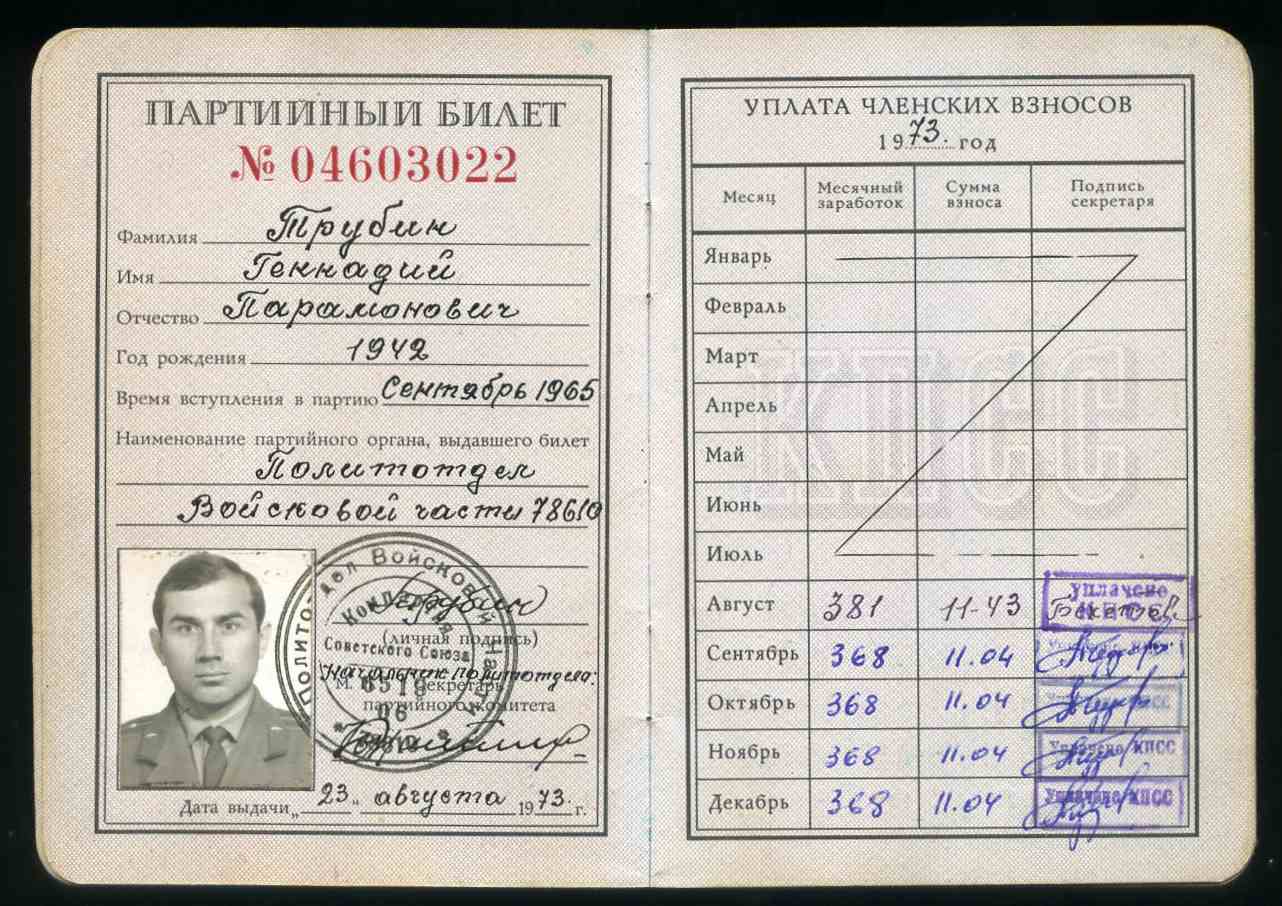 ПАРТИЙНЫЙ БИЛЕТ
№ 04603022
Фамилия Трубин
Имя Геннадий
Отчество Парамонович
Год рождения 1942
Время вступления в партию Сентябрь 1965
Наименование партийного органа, выдавшего билет
Политотдел
Войсковой части 78610
Трубин
(личная подпись)
Начальник политотдела:
М. секретарь
партийного комитета
Дата выдачи „23„ августа 1973. г.
Полито- дел Войсковой Части
Компартия
Советского Союза
УПЛАТА ЧЛЕНСКИХ ВЗНОСОВ
1973. год
Месяц Месячный заработок Сумма взноса Подпись секретаря
Январь
Февраль
Март
Апрель
Май
Июнь
Июль
Август 381 11-43 уплачено
Сентябрь 368 11.04
Октябрь 368 11.04
Ноябрь 368 11.04 Уплачено КПСС
Декабрь 368 11.04 Уплачено КПСС
КПСС